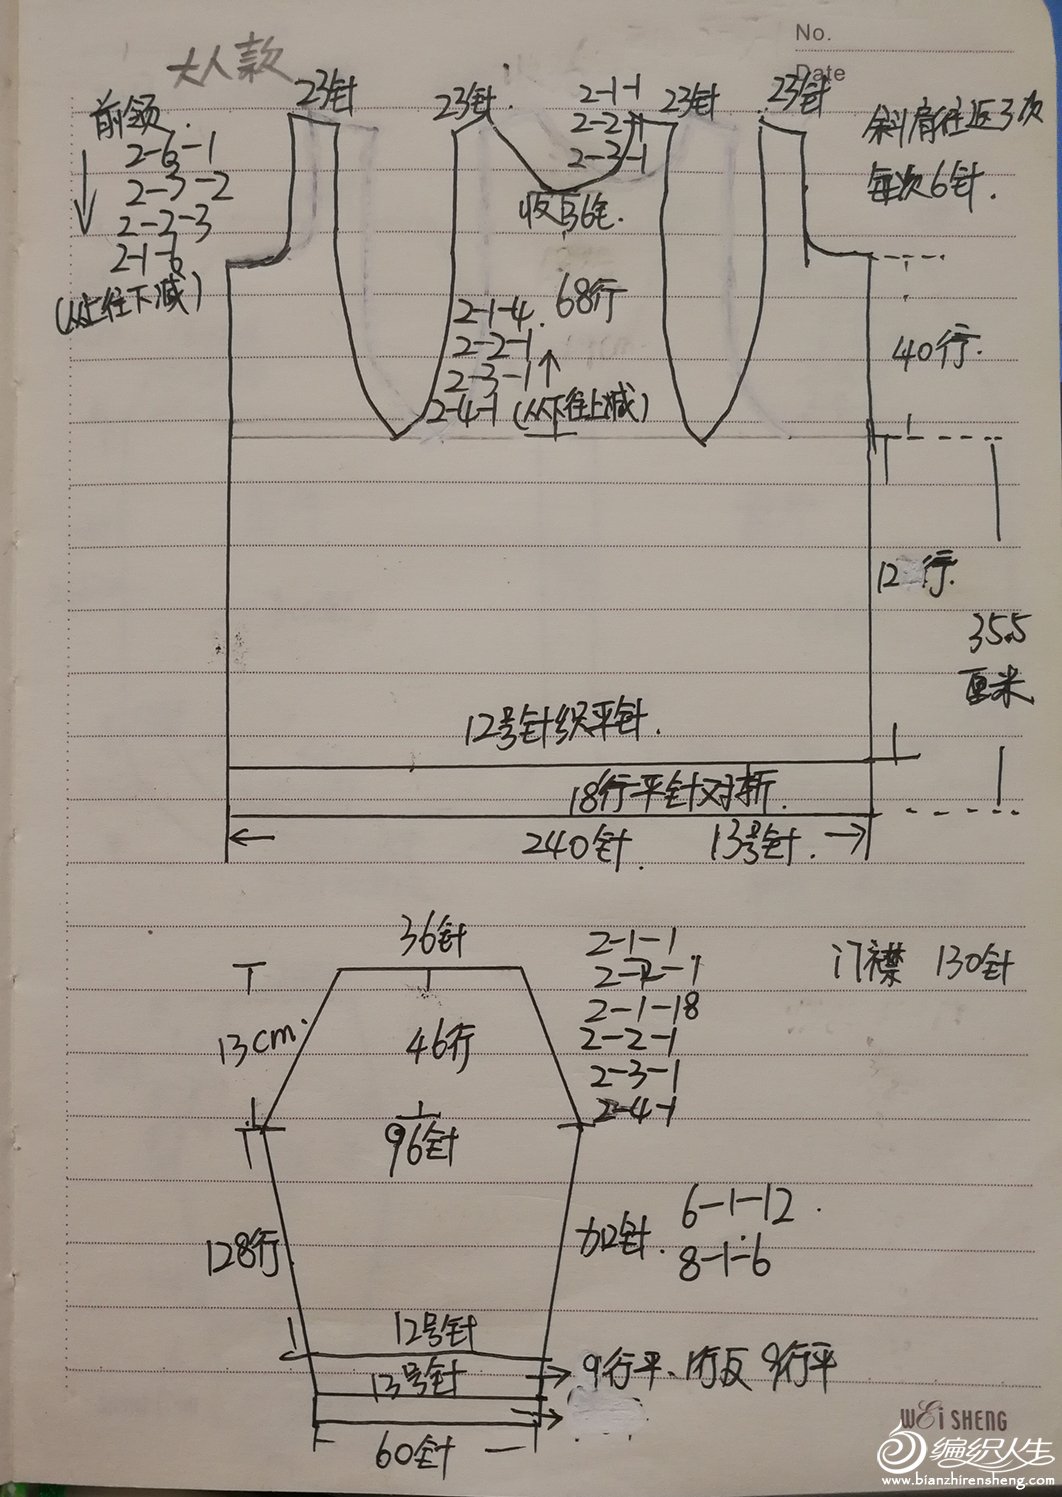 No.
Date
大人款
23针 23针 2-1-1 23针 23针
2-2-1
2-3-1
前领
2-6-1
2-3-2
2-2-3
2-1-6
(从上往下减)
斜肩往返3次
每次6针.
收 36针.
68行
2-1-4
2-2-1
2-3-1
2-4-1 (从下往上减)
40行.
行.
35.5
厘米
12号针织平针.
18行平针对折.
240针. 13号针.
36针
13cm.
46行
96针
128行
2-1-1
2-1-18
2-2-1
2-3-1
2-4-1
门襟 130针
加针. 6-1-12.
8-1-6
12号针
13号针
9行平、1行反 9行平
60针
WEiSHENG
编织人生
www.bianzhirensheng.com